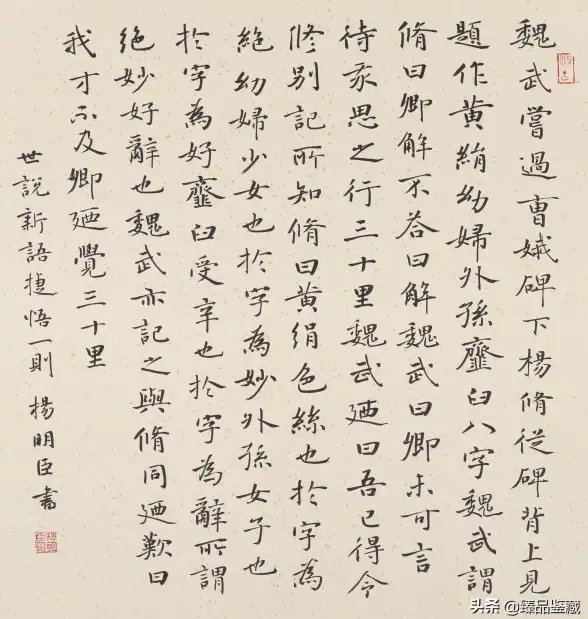 魏武嘗過曹娥碑下楊脩從碑背上見
題作黄絹幼婦外孫齏臼八字魏武謂
脩曰卿解不荅曰解魏武曰卿未可言
待我思之行三十里魏武廼曰吾已得令
脩别記所知脩曰黄绢色絲也扵字為
絶幼婦少女也扵字為妙外孫女子也
扵字為好齏臼受辛也扵字為辭所謂
絶妙好辭也魏武亦記之與脩同廼歎曰
我才不及卿廼覺三十里
世説新語捷悟一則 楊明臣書
头条@臻品鉴藏